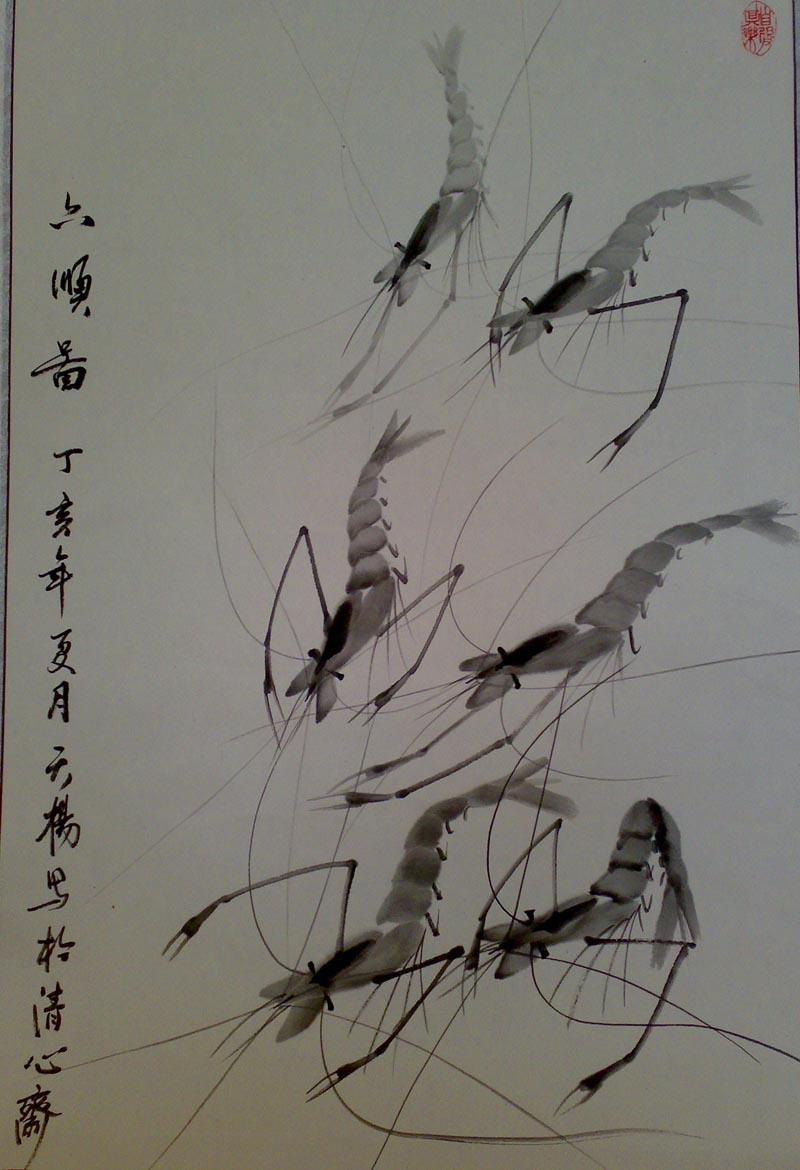 六順畐丁亥年夏月天楊写於清心齋